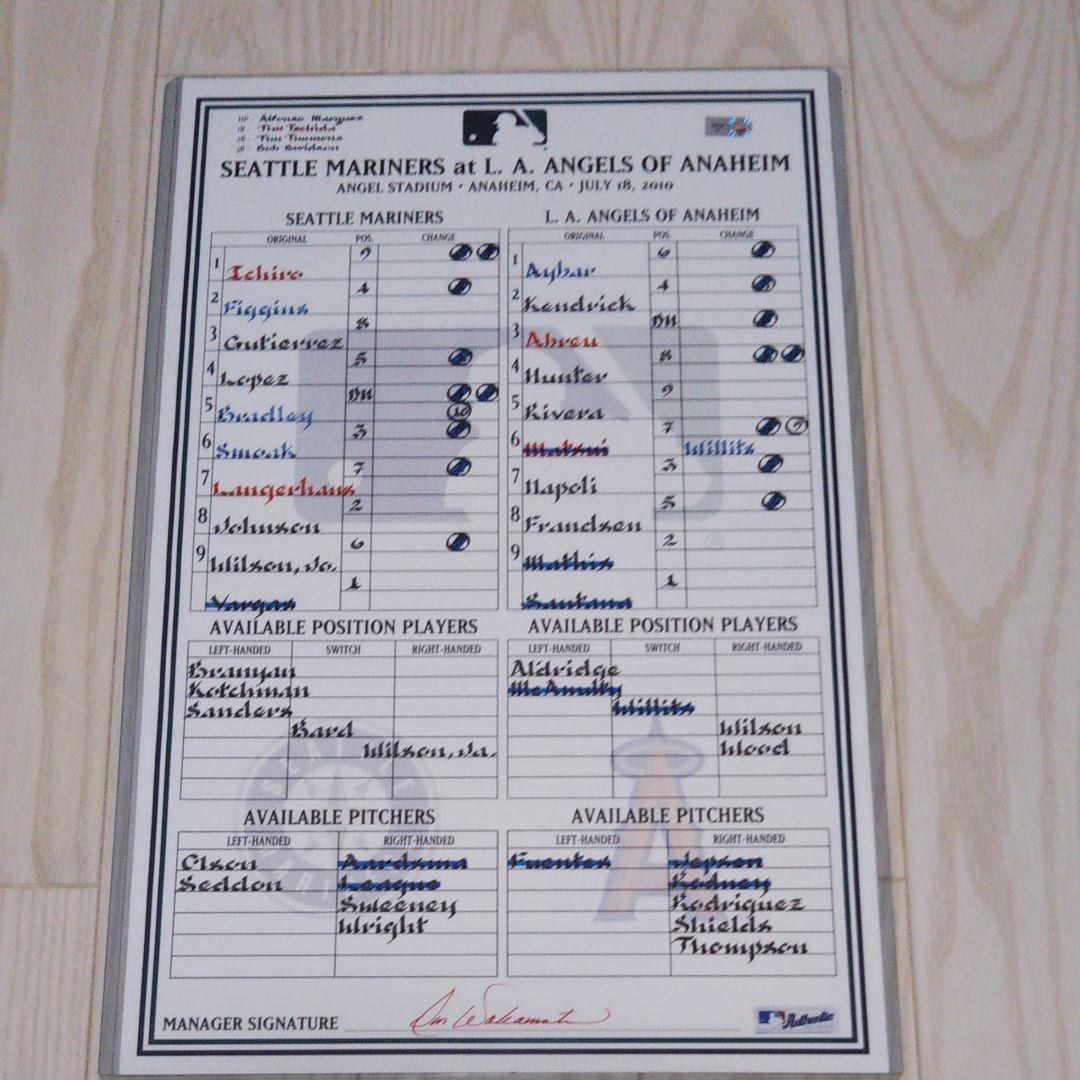 HP - Alfonso Marquez
1B - Tim Tschida
2B - Tim Timmons
3B - Bob Davidson
SEATTLE MARINERS at L. A. ANGELS OF ANAHEIM
ANGEL STADIUM • ANAHEIM, CA • JULY 18, 2010
SEATTLE MARINERS
ORIGINAL POS. CHANGE
1 Ichiro 9
2 Figgins 4
3 Gutierrez 8
4 Lopez 5
5 Bradley DH 10
6 Smoak 3
7 Langerhans 7
8 Johnson 2
9 Wilson, Jo. 6
Vargas 1
AVAILABLE POSITION PLAYERS
LEFT-HANDED SWITCH RIGHT-HANDED
Branyan
Kotchman
Sanders
Bard
Wilson, Ja.
AVAILABLE PITCHERS
LEFT-HANDED RIGHT-HANDED
Olson Aardsma
Seddon League
Sweeney
Wright
L. A. ANGELS OF ANAHEIM
ORIGINAL POS. CHANGE
1 Aybar 6
2 Kendrick 4
3 Abreu DH
4 Hunter 8
5 Rivera 9
6 Matsui 7 Willits 7
7 Napoli 3
8 Frandsen 5
9 Mathis 2
Santana 1
AVAILABLE POSITION PLAYERS
LEFT-HANDED SWITCH RIGHT-HANDED
Aldridge
McAnulty
Willits
Wilson
Wood
AVAILABLE PITCHERS
LEFT-HANDED RIGHT-HANDED
Fuentes Jepsen
Rodney
Rodriguez
Shields
Thompson
MANAGER SIGNATURE Don Wakamatsu
Authentic